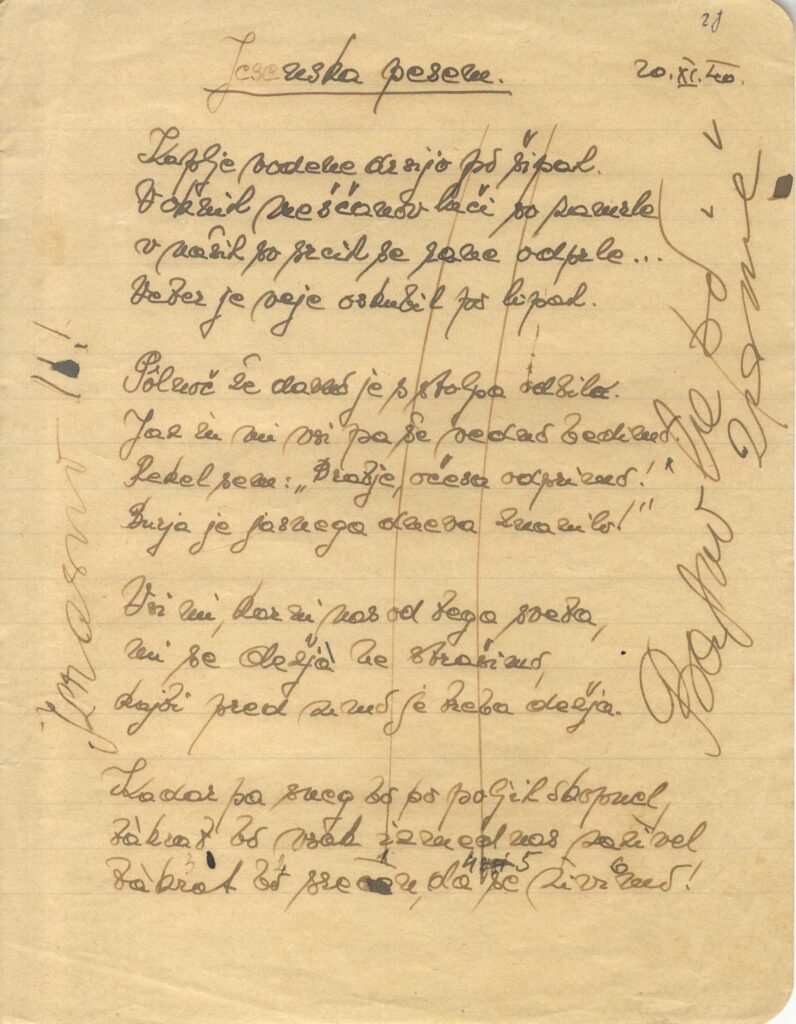 21
Jesenska pesem.
20. XI. 40.
Kaplje vodene drsijo po šipah.
V oknih meščanov luči so zamrle
v naših so srcih se rane odprle...
Veter je veje oskubil po lipah.
Pólnoč že davno je s stolpa odbila.
Jaz in mi vsi pa še vedno bedimo.
Rekel sem: „Bratje, očesa odprimo!"
Burja je jasnega dneva znamilo!"
Vsi mi, kar ni nas od tega sveta,
mi se dežjà ne strašimo,
kajti pred zimo je treba dežja.
Kadar pa sneg bo po poljih skopnel,
tàkrat bo vsak izmed nas zaživel
tàkrat bo srečen, da še živimo!
Krasno !!!
Bojmo se